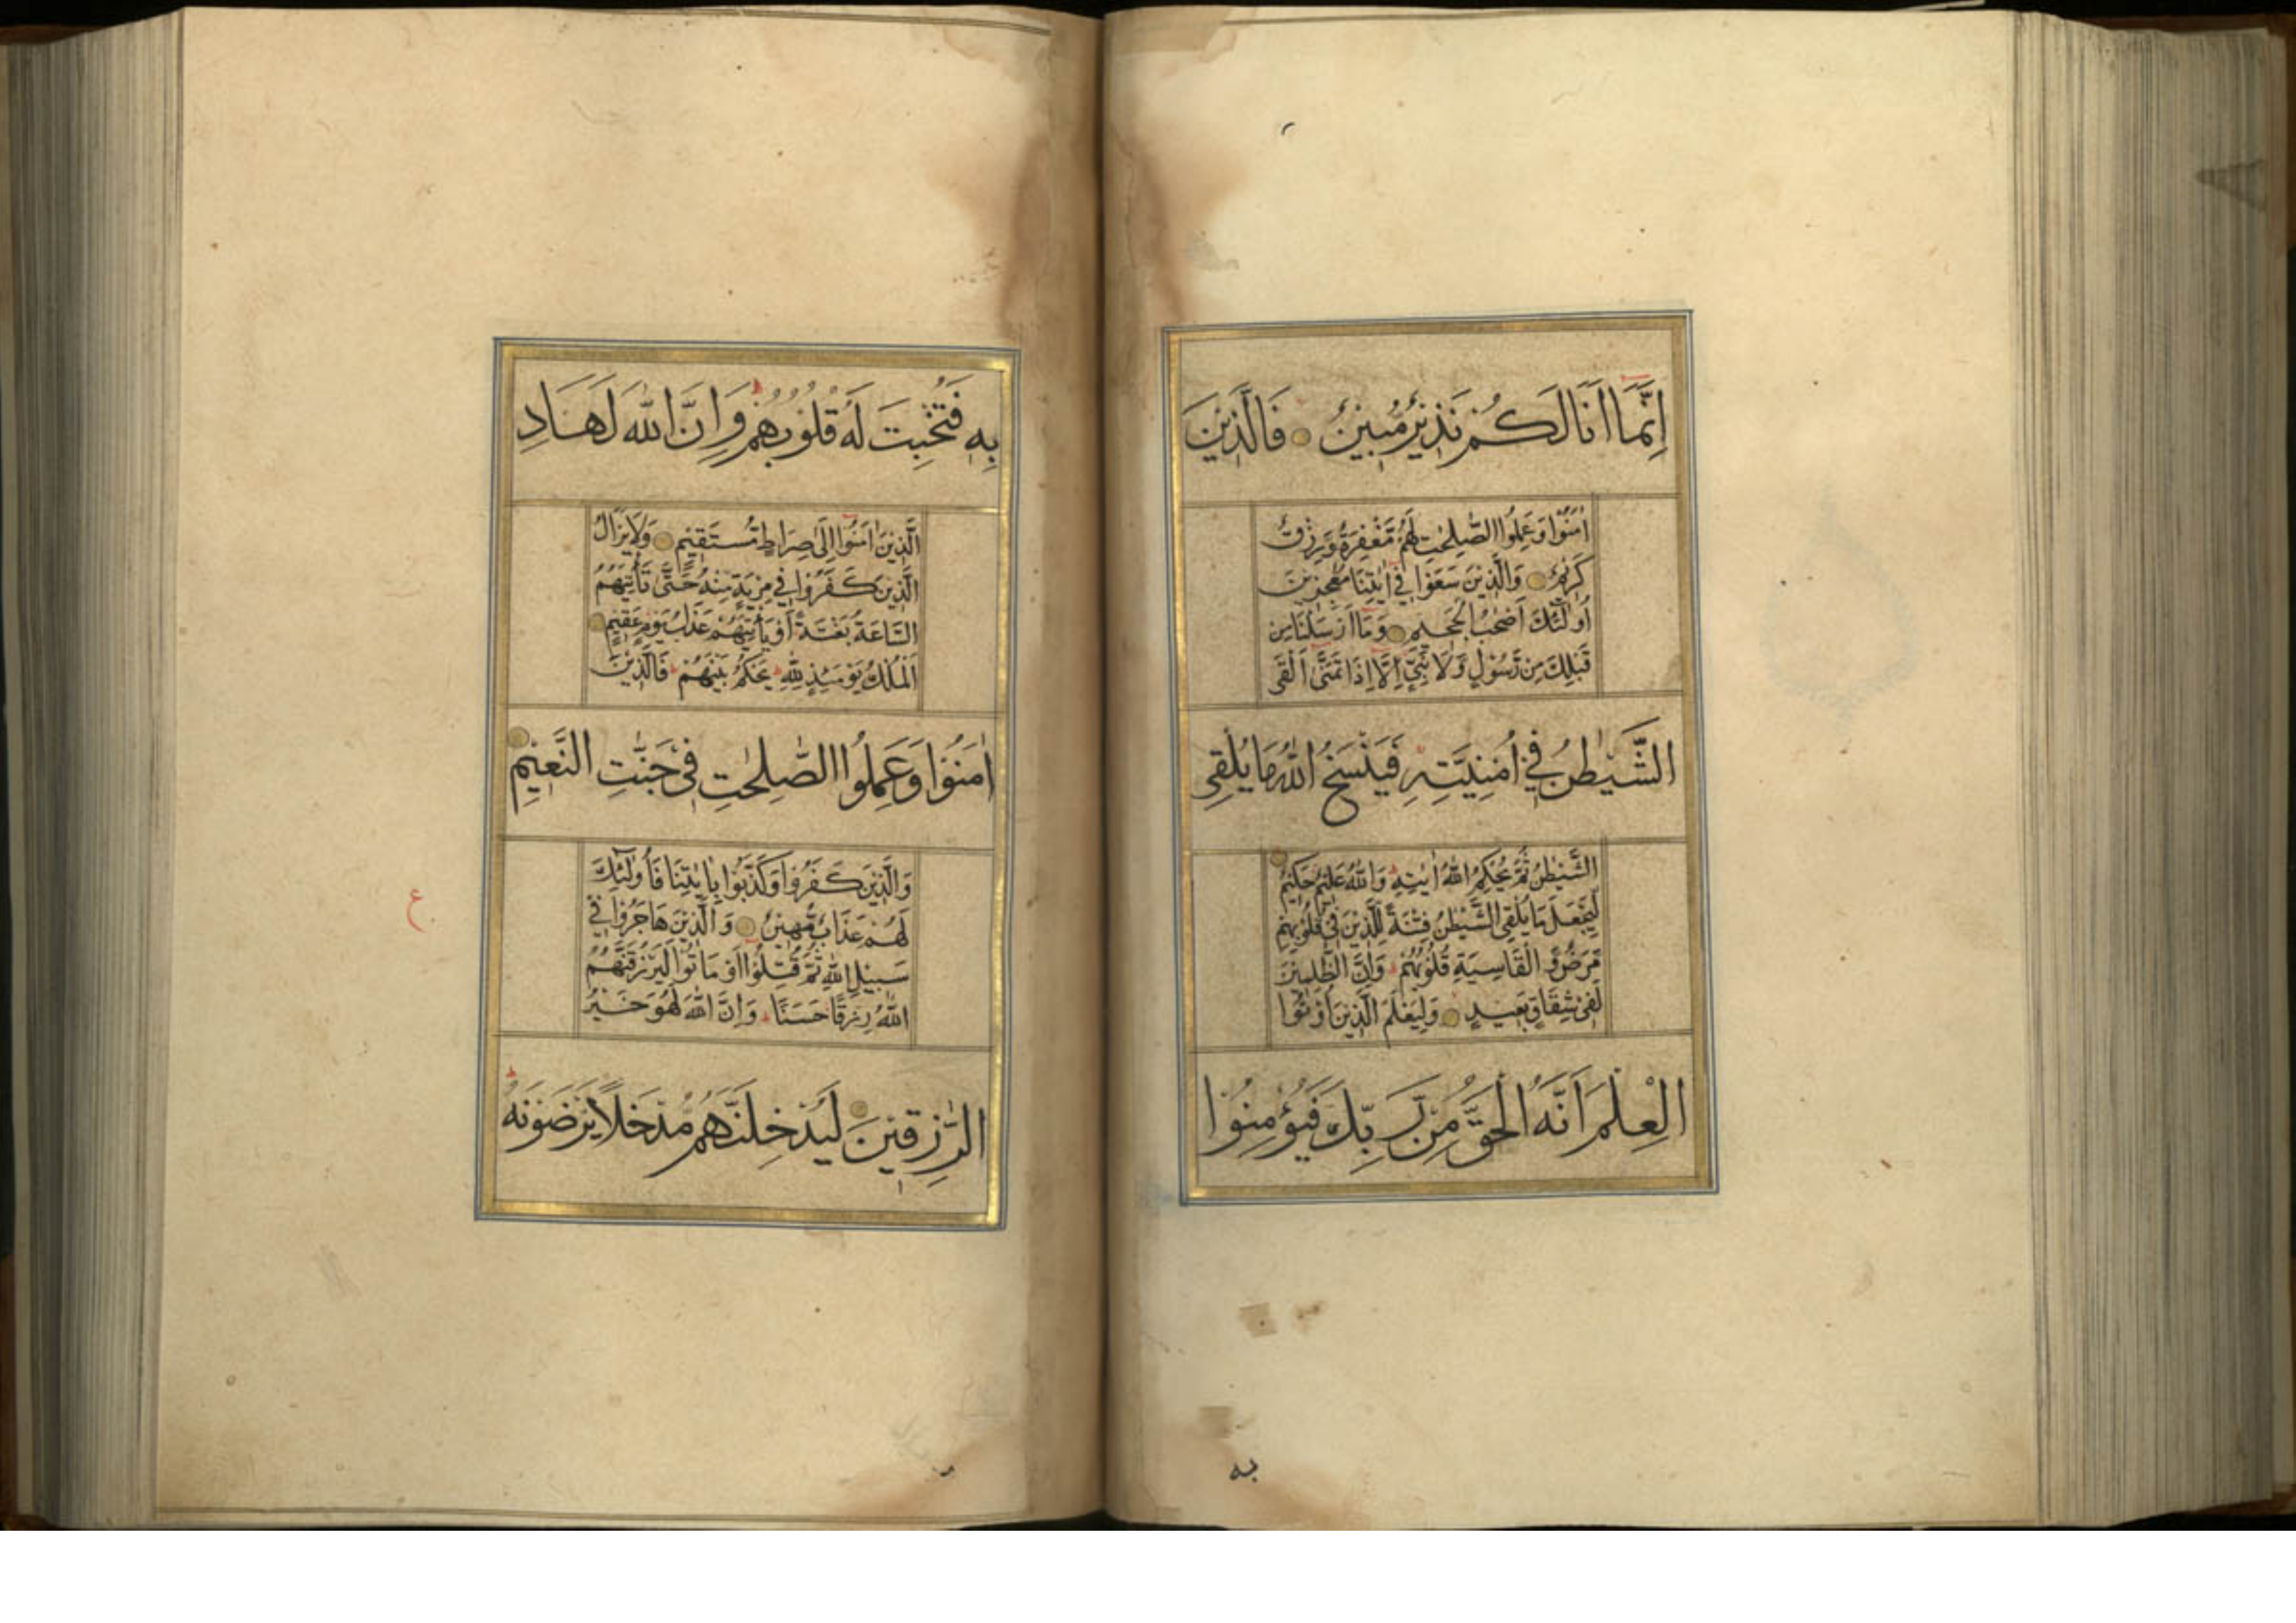 اِنَّمَا اَنَا لَكُمْ نَذِيْرٌ مُّبِيْنٌ فَالَّذِيْنَ
اٰمَنُوْا وَعَمِلُوا الصّٰلِحٰتِ لَهُمْ مَّغْفِرَةٌ وَّرِزْقٌ
كَرِيْمٌ وَالَّذِيْنَ سَعَوْا فِيْ اٰيٰتِنَا مُعٰجِزِيْنَ
اُولٰٓئِكَ اَصْحٰبُ الْجَحِيْمِ وَمَا اَرْسَلْنَا مِنْ
قَبْلِكَ مِنْ رَّسُوْلٍ وَّلَا نَبِيٍّ اِلَّا اِذَا تَمَنّٰى اَلْقَى
الشَّيْطٰنُ فِيْ اُمْنِيَّتِهٖ فَيَنْسَخُ اللّٰهُ مَا يُلْقِى
الشَّيْطٰنُ ثُمَّ يُحْكِمُ اللّٰهُ اٰيٰتِهٖ وَاللّٰهُ عَلِيْمٌ حَكِيْمٌ
لِّيَجْعَلَ مَا يُلْقِى الشَّيْطٰنُ فِتْنَةً لِّلَّذِيْنَ فِيْ قُلُوْبِهِمْ
مَّرَضٌ وَّالْقَاسِيَةِ قُلُوْبُهُمْ وَاِنَّ الظّٰلِمِيْنَ
لَفِيْ شِقَاقٍ بَعِيْدٍ وَّلِيَعْلَمَ الَّذِيْنَ اُوْتُوا
الْعِلْمَ اَنَّهُ الْحَقُّ مِنْ رَّبِّكَ فَيُؤْمِنُوْا
به
بِهٖ فَتُخْبِتَ لَهٗ قُلُوْبُهُمْ وَاِنَّ اللّٰهَ لَهَادِ
الَّذِيْنَ اٰمَنُوْا اِلٰى صِرَاطٍ مُّسْتَقِيْمٍ وَلَا يَزَالُ
الَّذِيْنَ كَفَرُوْا فِيْ مِرْيَةٍ مِّنْهُ حَتّٰى تَأْتِيَهُمُ
السَّاعَةُ بَغْتَةً اَوْ يَأْتِيَهُمْ عَذَابُ يَوْمٍ عَقِيْمٍ
اَلْمُلْكُ يَوْمَئِذٍ لِّلّٰهِ يَحْكُمُ بَيْنَهُمْ فَالَّذِيْنَ
اٰمَنُوْا وَعَمِلُوا الصّٰلِحٰتِ فِيْ جَنّٰتِ النَّعِيْمِ
وَالَّذِيْنَ كَفَرُوْا وَكَذَّبُوْا بِاٰيٰتِنَا فَاُولٰٓئِكَ
لَهُمْ عَذَابٌ مُّهِيْنٌ وَالَّذِيْنَ هَاجَرُوْا فِيْ
سَبِيْلِ اللّٰهِ ثُمَّ قُتِلُوْا اَوْ مَاتُوْا لَيَرْزُقَنَّهُمُ
اللّٰهُ رِزْقًا حَسَنًا وَاِنَّ اللّٰهَ لَهُوَ خَيْرُ
الرّٰزِقِيْنَ لَيُدْخِلَنَّهُمْ مُّدْخَلًا يَّرْضَوْنَهٗ
ع